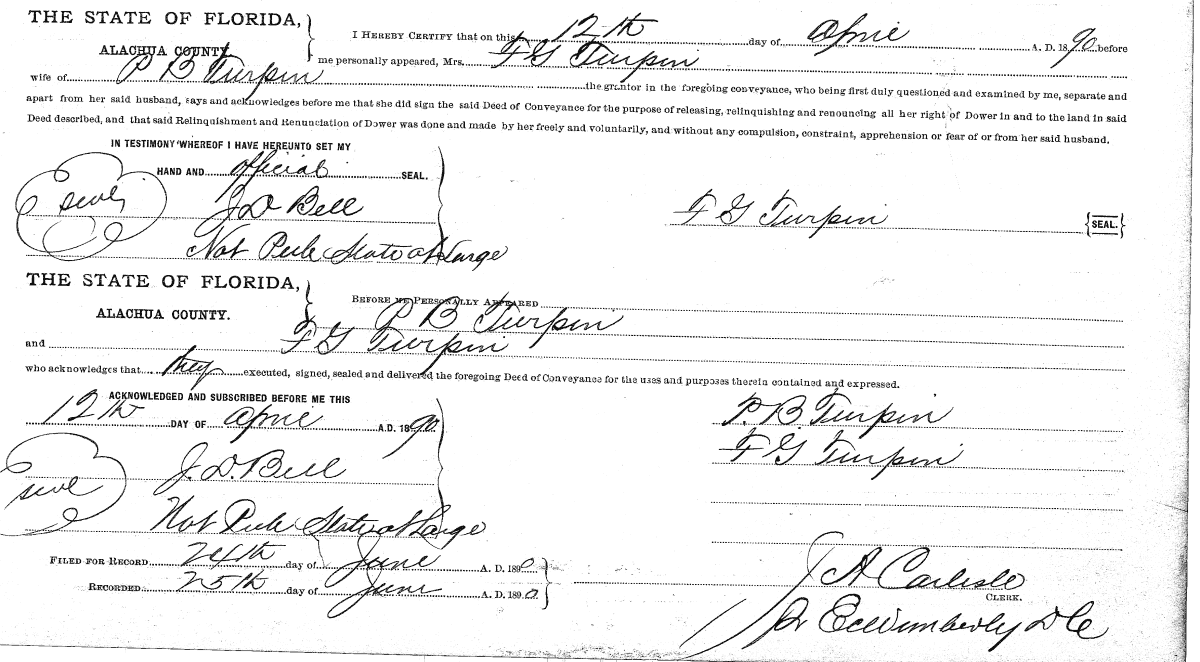 THE STATE OF FLORIDA,
ALACHUA COUNTY.
I HEREBY CERTIFY that on this 12th day of April A. D. 1890 before
me personally appeared, Mrs. F G Turpin
wife of P B Turpin the grantor in the foregoing conveyance, who being first duly questioned and examined by me, separate and
apart from her said husband, says and acknowledges before me that she did sign the said Deed of Conveyance for the purpose of releasing, relinquishing and renouncing all her right of Dower in and to the land in said
Deed described, and that said Relinquishment and Renunciation of Dower was done and made by her freely and voluntarily, and without any compulsion, constraint, apprehension or fear of or from her said husband.
IN TESTIMONY WHEREOF I HAVE HEREUNTO SET MY
HAND AND official SEAL.
seal J D Bell
F G Turpin {SEAL.}
Not Pub State at Large
THE STATE OF FLORIDA,
ALACHUA COUNTY.
BEFORE ME PERSONALLY APPEARED
P B Turpin
and F G Turpin
who acknowledges that they executed, signed, sealed and delivered the foregoing Deed of Conveyance for the uses and purposes therein contained and expressed.
ACKNOWLEDGED AND SUBSCRIBED BEFORE ME THIS
12th DAY OF April A.D. 1890
P. B. Turpin
F G Turpin
seal J. D. Bell
Not Pub State at Large
FILED FOR RECORD 24th day of June A. D. 1890
RECORDED 25th day of June A. D. 1890
J A Carlisle
CLERK.
Wimberly D C